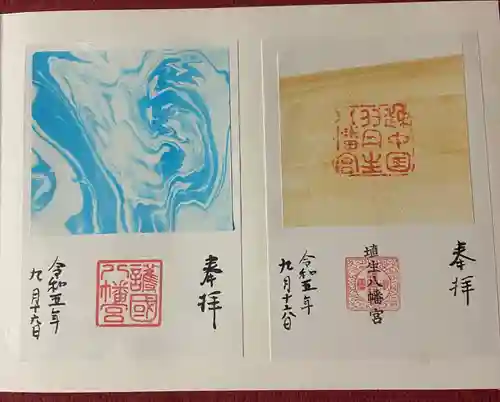 奉拝
越中国
八幡宮
埴生八幡宮
令和五年
九月十六日
奉拝
護國
八幡宮
令和五年
九月十六日